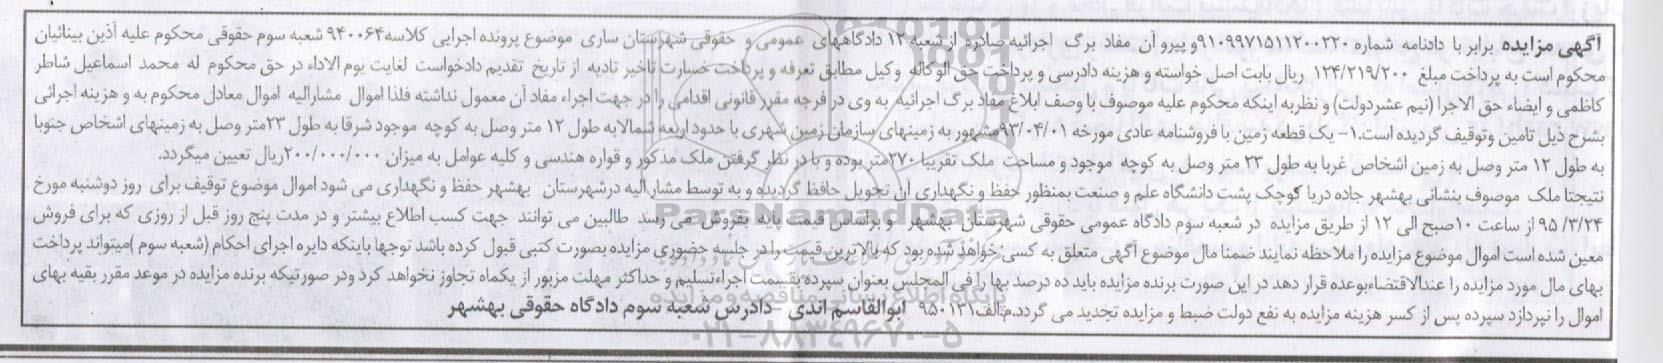 آگهی مزایده برابر با دادنامه شماره ۹۱۰۹۹۷۱۵۱۱۲۰۰۲۲۰ و پیرو آن مفاد برگ اجرائیه صادره از شعبه ۱۲ دادگاههای عمومی و حقوقی شهرستان ساری موضوع پرونده اجرایی کلاسه ۹۴۰۰۶۴ شعبه سوم حقوقی محکوم علیه آذین بینائیان
محکوم است به پرداخت مبلغ ۱۲۴/۲۱۹/۲۰۰ ریال بابت اصل خواسته و هزینه دادرسی و پرداخت حق الوکاله وکیل مطابق تعرفه و پرداخت خسارت تاخیر تادیه از تاریخ تقدیم دادخواست لغایت یوم الاداء در حق محکوم له محمد اسماعیل شاطر
کاظمی و ایضاء حق الاجرا (نیم عشردولت) و نظربه اینکه محکوم علیه موصوف با وصف ابلاغ مفاد برگ اجرائیه به وی در فرجه مقرر قانونی اقدامی را در جهت اجراء مفاد آن معمول نداشته فلذا اموال مشارالیه اموال معادل محکوم به و هزینه اجرائی
بشرح ذیل تامین وتوقیف گردیده است.۱- یک قطعه زمین با فروشنامه عادی مورخه ۹۳/۰۴/۰۱ مشهور به زمینهای سازمان زمین شهری با حدود اربعه شمالابه طول ۱۲ متر وصل به کوچه موجود شرقا به طول ۲۳متر وصل به زمینهای اشخاص جنوبا
به طول ۱۲ متر وصل به زمین اشخاص غربا به طول ۲۳ متر وصل به کوچه موجود و مساحت ملک تقریبا ۲۷۰متر بوده و با در نظر گرفتن ملک مذکور و قواره هندسی و کلیه عوامل به میزان ۲۰۰/۰۰۰/۰۰۰ریال تعیین میگردد.
نتیجتا ملک موصوف بنشانی بهشهر جاده دریا کوچک پشت دانشگاه علم و صنعت بمنظور حفظ و نگهداری آن تحویل حافظ گردیده و به توسط مشارالیه درشهرستان بهشهر حفظ و نگهداری می شود اموال موضوع توقیف برای روز دوشنبه مورخ
۹۵/۳/۲۴ از ساعت ۱۰صبح الی ۱۲ از طریق مزایده در شعبه سوم دادگاه عمومی حقوقی شهرستان بهشهر و براساس قیمت پایه بفروش می رسد طالبین می توانند جهت کسب اطلاع بیشتر و در مدت پنج روز قبل از روزی که برای فروش
معین شده است اموال موضوع مزایده را ملاحظه نمایند ضمنا مال موضوع آگهی متعلق به کسی خواهد شده بود که بالاترین قیمت را در جلسه حضوری مزایده بصورت کتبی قبول کرده باشد توجها باینکه دایره اجرای احکام (شعبه سوم )میتواند پرداخت
بهای مال مورد مزایده را عندالاقتضاءبوعده قرار دهد در این صورت برنده مزایده باید ده درصد بها را فی المجلس بعنوان سپرده بقسمت اجراءتسلیم و حداکثر مهلت مزبور از یکماه تجاوز نخواهد کرد ودر صورتیکه برنده مزایده در موعد مقرر بقیه بهای
اموال را نپردازد سپرده پس از کسر هزینه مزایده به نفع دولت ضبط و مزایده تجدید می گردد.م.الف۹۵۰۱۳۱ ابوالقاسم اندی -دادرس شعبه سوم دادگاه حقوقی بهشهر
ParsNamadData
پایگاه اطلاع رسانی مناقصه و مزایده
۰۲۱-۸۸۳۴۹۶۷۰-۵